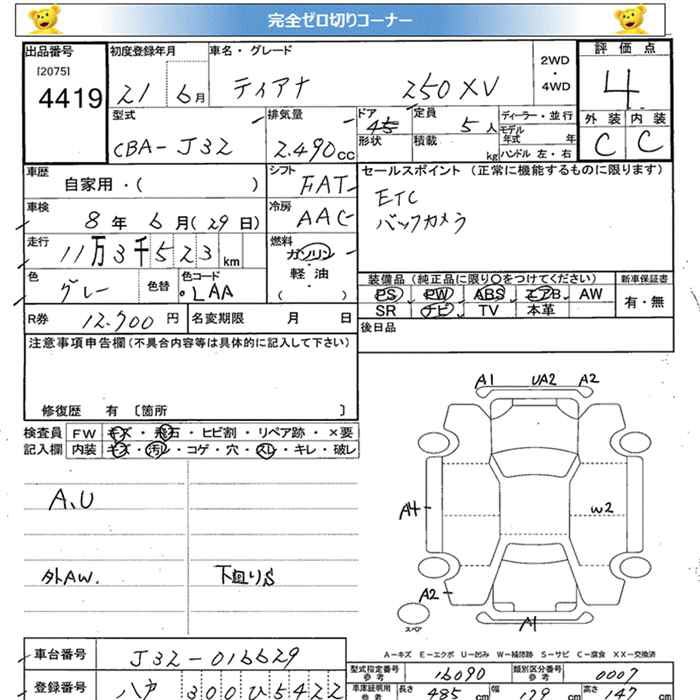 完全ゼロ切りコーナー
出品番号 初度登録年月 車名・グレード 2WD・4WD 評価点
[2075]
4419 21 6月 ティアナ 250XV 4
型式 排気量 ドア 定員 5人 ディーラー・並行 外装 内装
CBA-J32 2.490cc 形状 積載 kg モデル年式 年 C C
ハンドル 左・右
車歴 自家用・( ) シフト FAT セールスポイント (正常に機能するものに限ります)
車検 8年 6月(29日) 冷房 AAC ETC
バックカメラ
走行 11万3千523km 燃料 ガソリン
軽油
( )
色 グレー 色替 色コード LAA
装備品 (純正品に限り〇をつけてください) 新車保証書
PS PW ABS エアB AW 有・無
SR ナビ TV 本革
R券 12.700円 名変期限 月 日 後日品
注意事項申告欄(不具合内容等は具体的に記入して下さい)
修復歴 有 [箇所 ]
検査員 FW キズ・飛石・ヒビ割・リペア跡・×要
記入欄 内装 キズ・汚れ・コゲ・穴・スレ・キレ・破レ
A1 UA2 A2
A、U
A4 W2
外AW. 下廻りS
A2
スペア A1
A-キズ E-エクボ U-凹み W-補修跡 S-サビ C-腐食 XX-交換済
車台番号 J32-016629
型式指定番号 参考 16090 類別区分番号 参考 0007
登録番号 300 ひ 5422
車庫証明用 参考 長さ 485cm 幅 179cm 高さ 147cm